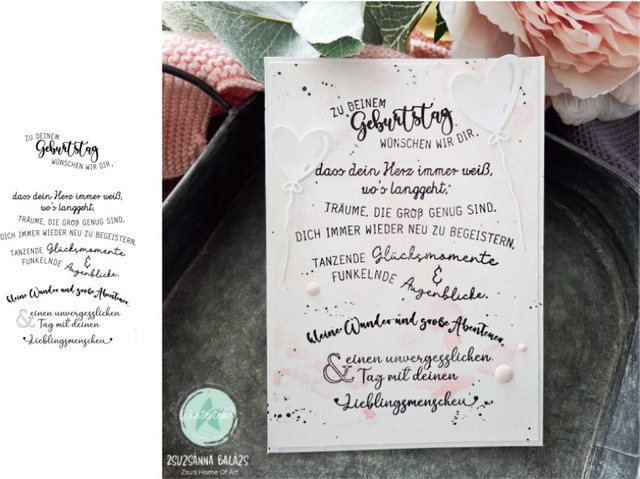 ZU DEINEM
Geburtstag
WÜNSCHEN WIR DIR,
dass dein Herz immer weiß,
wo's langgeht,
TRÄUME, DIE GROß GENUG SIND,
DICH IMMER WIEDER NEU ZU BEGEISTERN,
TANZENDE Glücksmomente
&
FUNKELNDE Augenblicke,
kleine Wunder und große Abenteuer,
& einen unvergesslichen
Tag mit deinen
Lieblingsmenschen
ZU DEINEM
Geburtstag
WÜNSCHEN WIR DIR,
dass dein Herz immer weiß,
wo's langgeht,
TRÄUME, DIE GROß GENUG SIND,
DICH IMMER WIEDER NEU ZU BEGEISTERN,
TANZENDE Glücksmomente
&
FUNKELNDE Augenblicke,
kleine Wunder und große Abenteuer,
& einen unvergesslichen
Tag mit deinen
Lieblingsmenschen
ZSUZSÁNNA BALÁZS
Zsu's Home Of Art